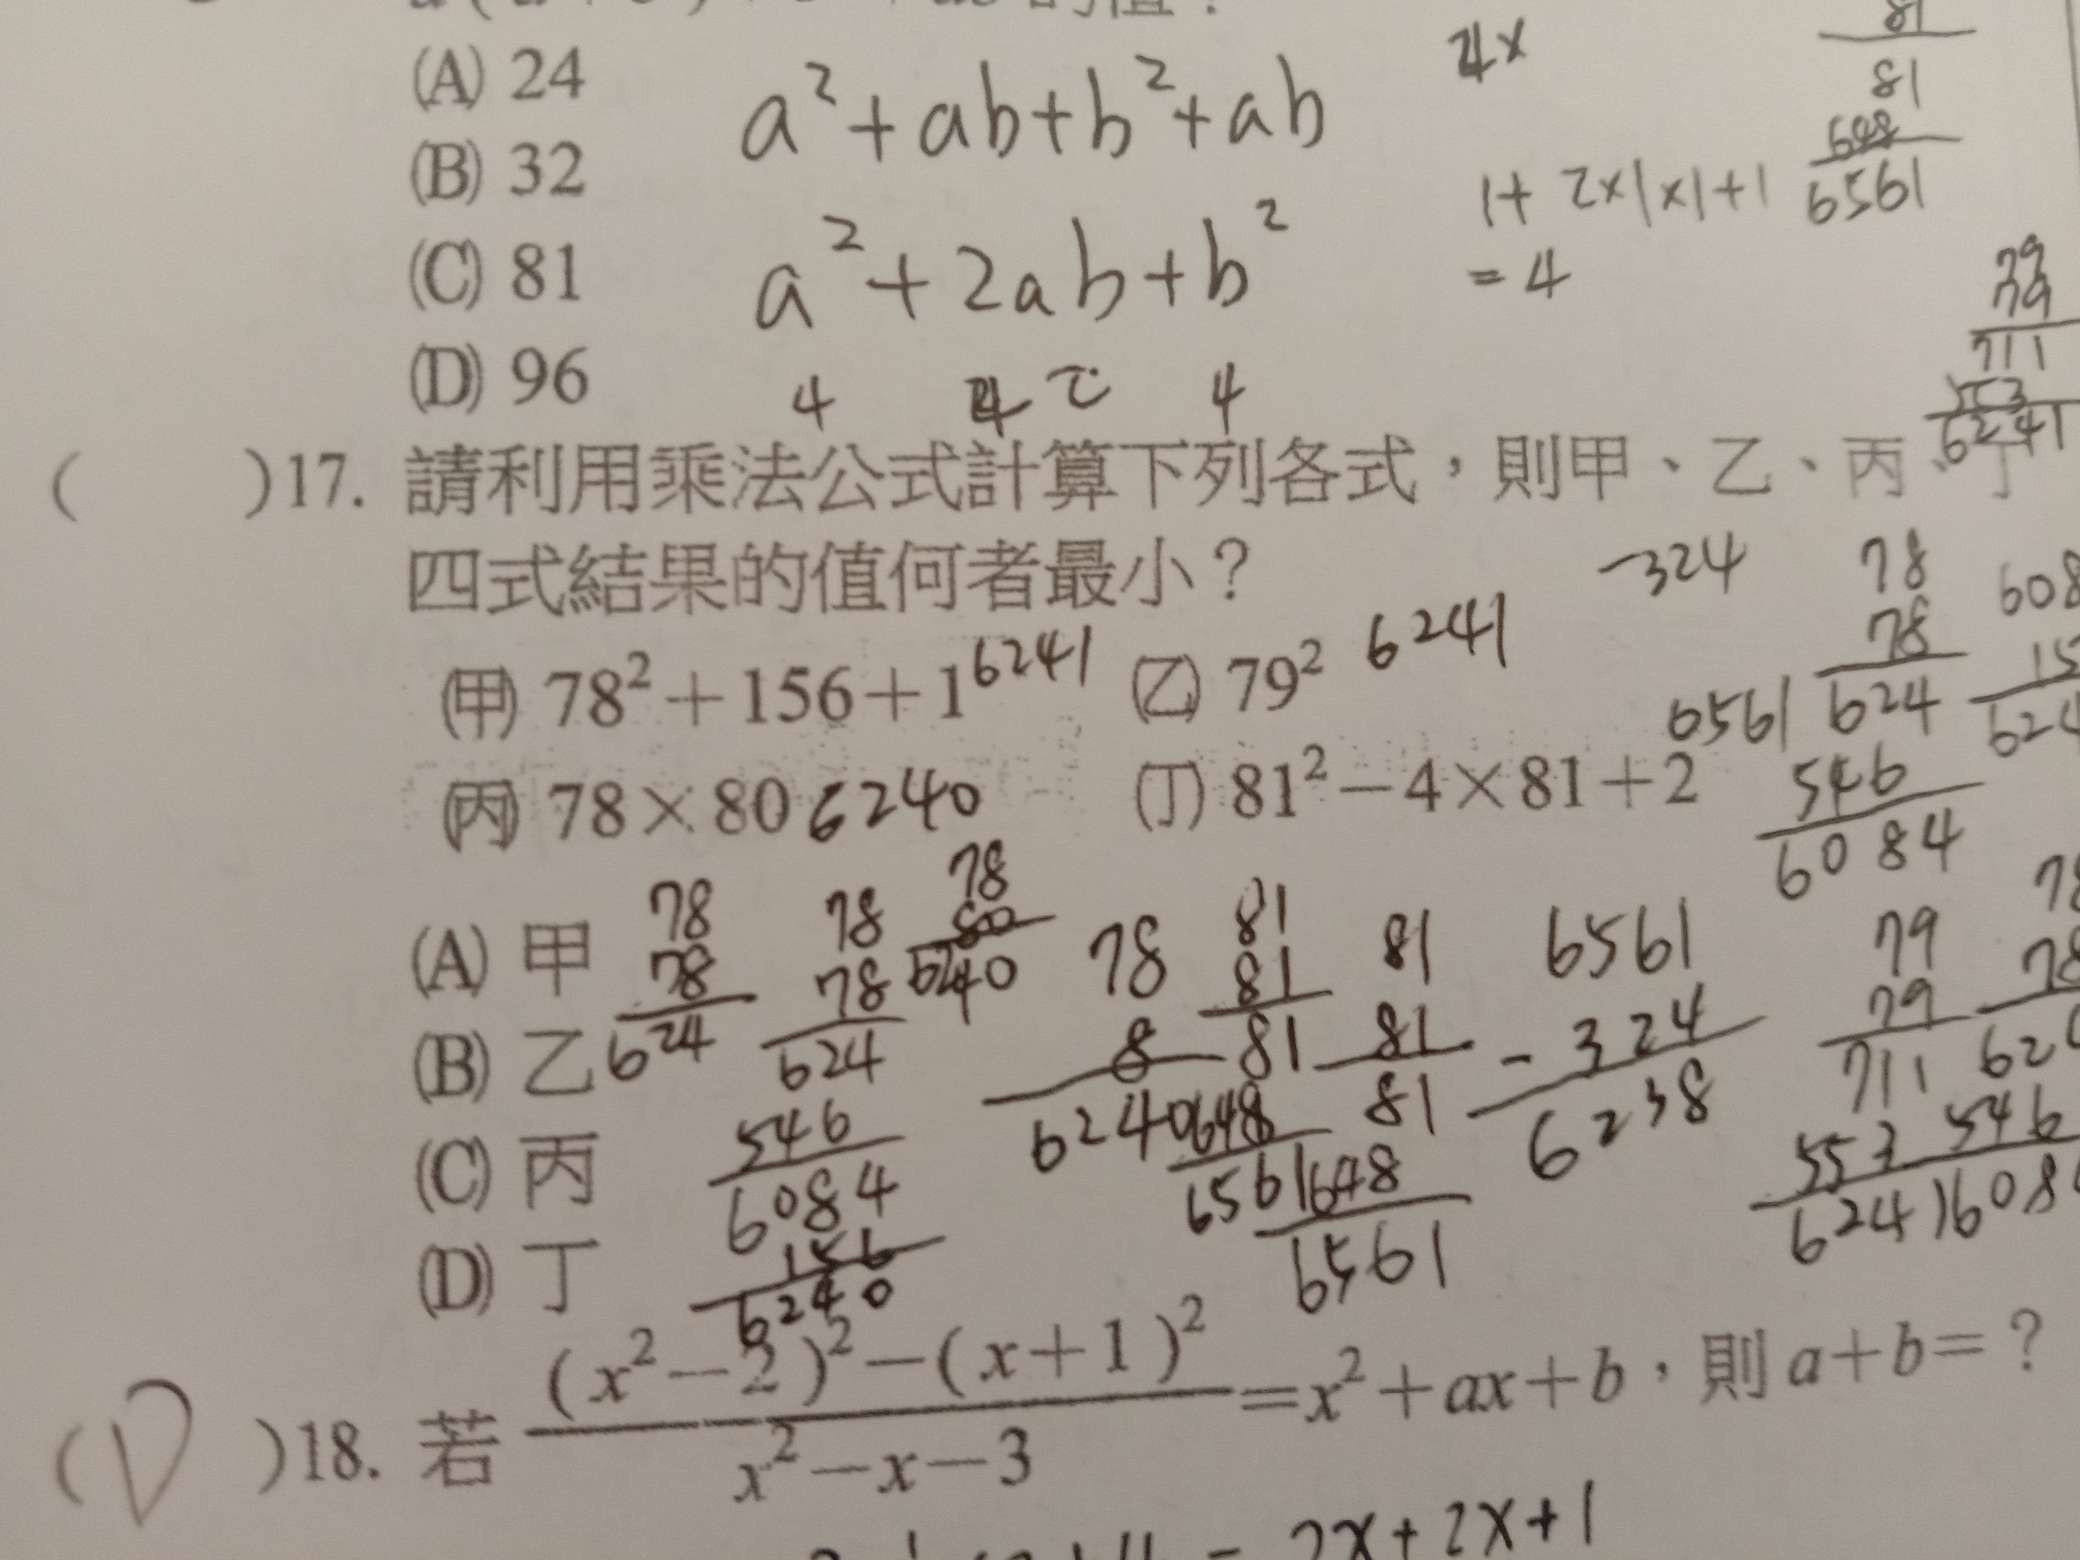 (A) 24
(B) 32
(C) 81
(D) 96
a²+ab+b²+ab
a²+2ab+b²
4 4 2 4
4x
1+2×1×1+1
=4
81
81
648
6561
79
79
711
553
6241
( )17. 請利用乘法公式計算下列各式，則甲、乙、丙、丁
四式結果的值何者最小？
-324
(甲) 78²+156+1 6241 (乙) 79² 6241
(丙) 78×80 6240 (丁) 81²-4×81+2
6561
78
78
624
546
6084
(A) 甲
(B) 乙
(C) 丙
(D) 丁
78
78
624
78
78
624
546
6084
156
6240
78
80
6240
78
8
6240
81
81
81
648
6561
81
81
81
648
6561
6561
-324
6238
79
79
711
553
6241
(D)18. 若 (x²-2)²-(x+1)² / x²-x-3 =x²+ax+b，則a+b=？
2x+2x+1